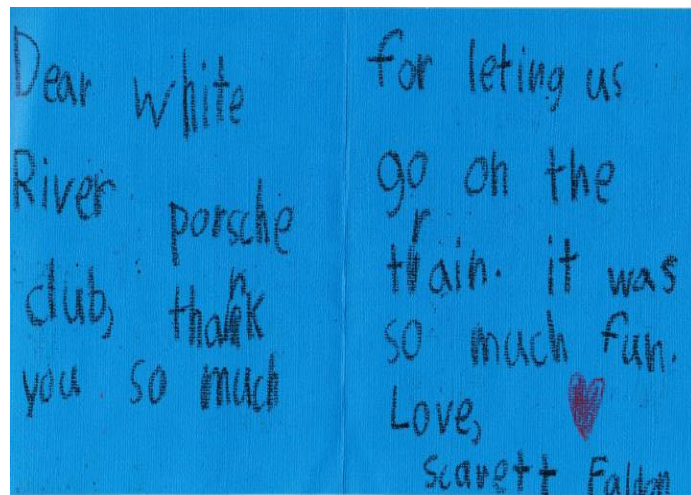 Dear white
River porsche
club, thank
you so much
for leting us
go on the
train. it was
so much fun.
Love,
scarett